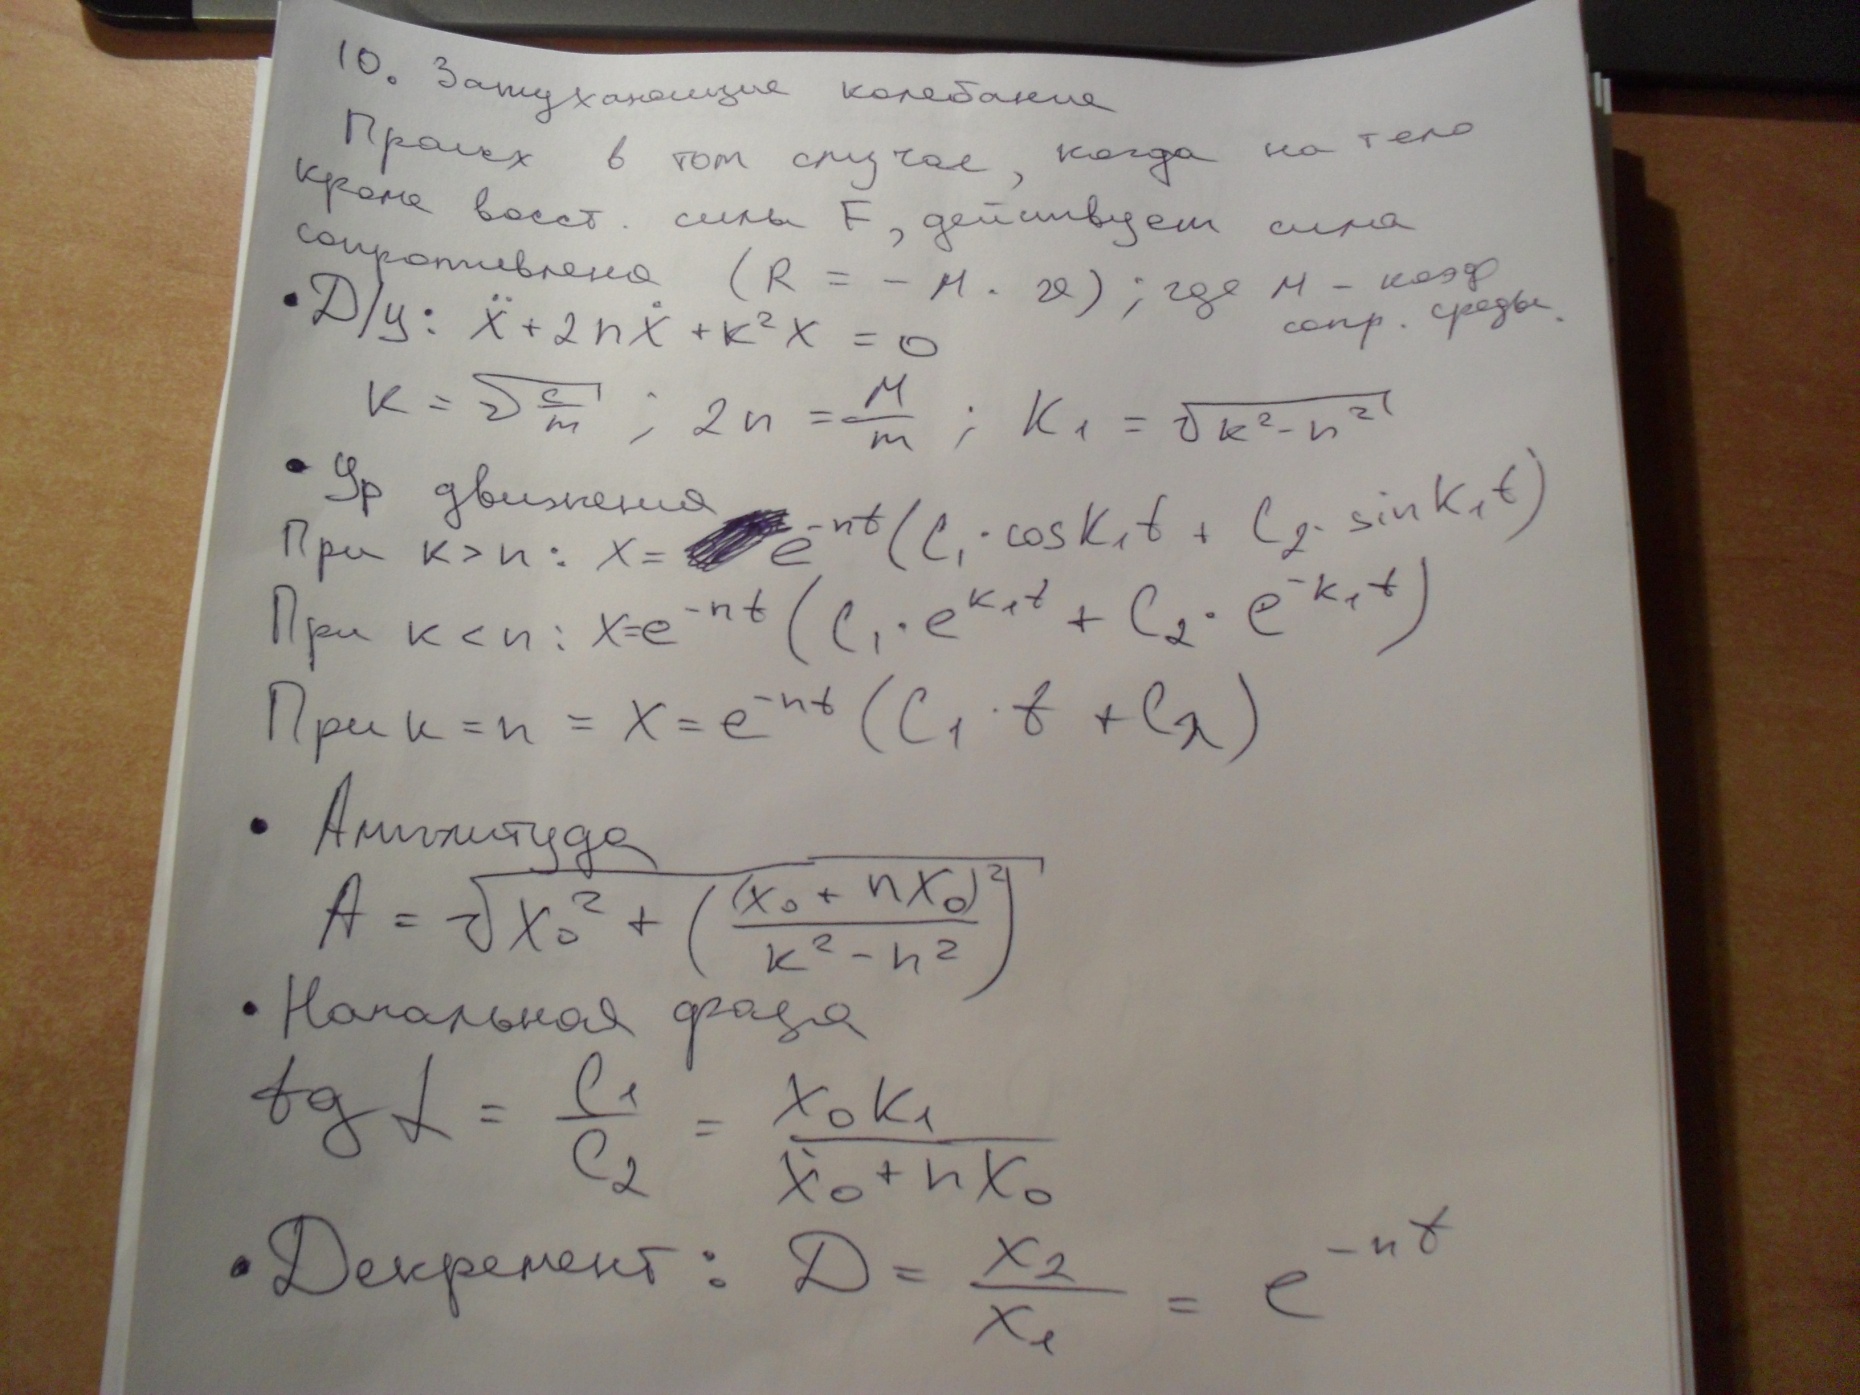 10. Затухающие колебание
Происх в том случае, когда на тело
кроме восст. силы F, действует сила
сопротивлена (R = - μ · v); где μ - коэф
сопр. среды.
• Д/у: ẍ + 2nẋ + k²x = 0
k = √(c/m) ; 2n = μ/m ; k₁ = √(k² - n²)
• Ур движения
При k > n : x = e^(-nt) (C₁ · cos k₁t + C₂ · sin k₁t)
При k < n : x = e^(-nt) (C₁ · e^(k₁t) + C₂ · e^(-k₁t))
При k = n = x = e^(-nt) (C₁ · t + C₂)
• Амплитуда
A = √(x₀² + ((x₀ + nx₀)²/(k² - n²)))
• Начальная фаза
tg α = C₁/C₂ = x₀k₁/(ẋ₀ + nx₀)
• Декремент : D = x₂/x₁ = e^(-nt)